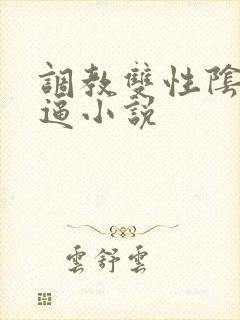 調教雙性陰
逼小説
雲舒雲